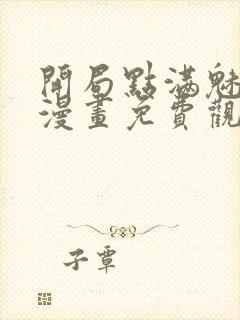 開局點滿魅
漫畫免費觀
子蕈